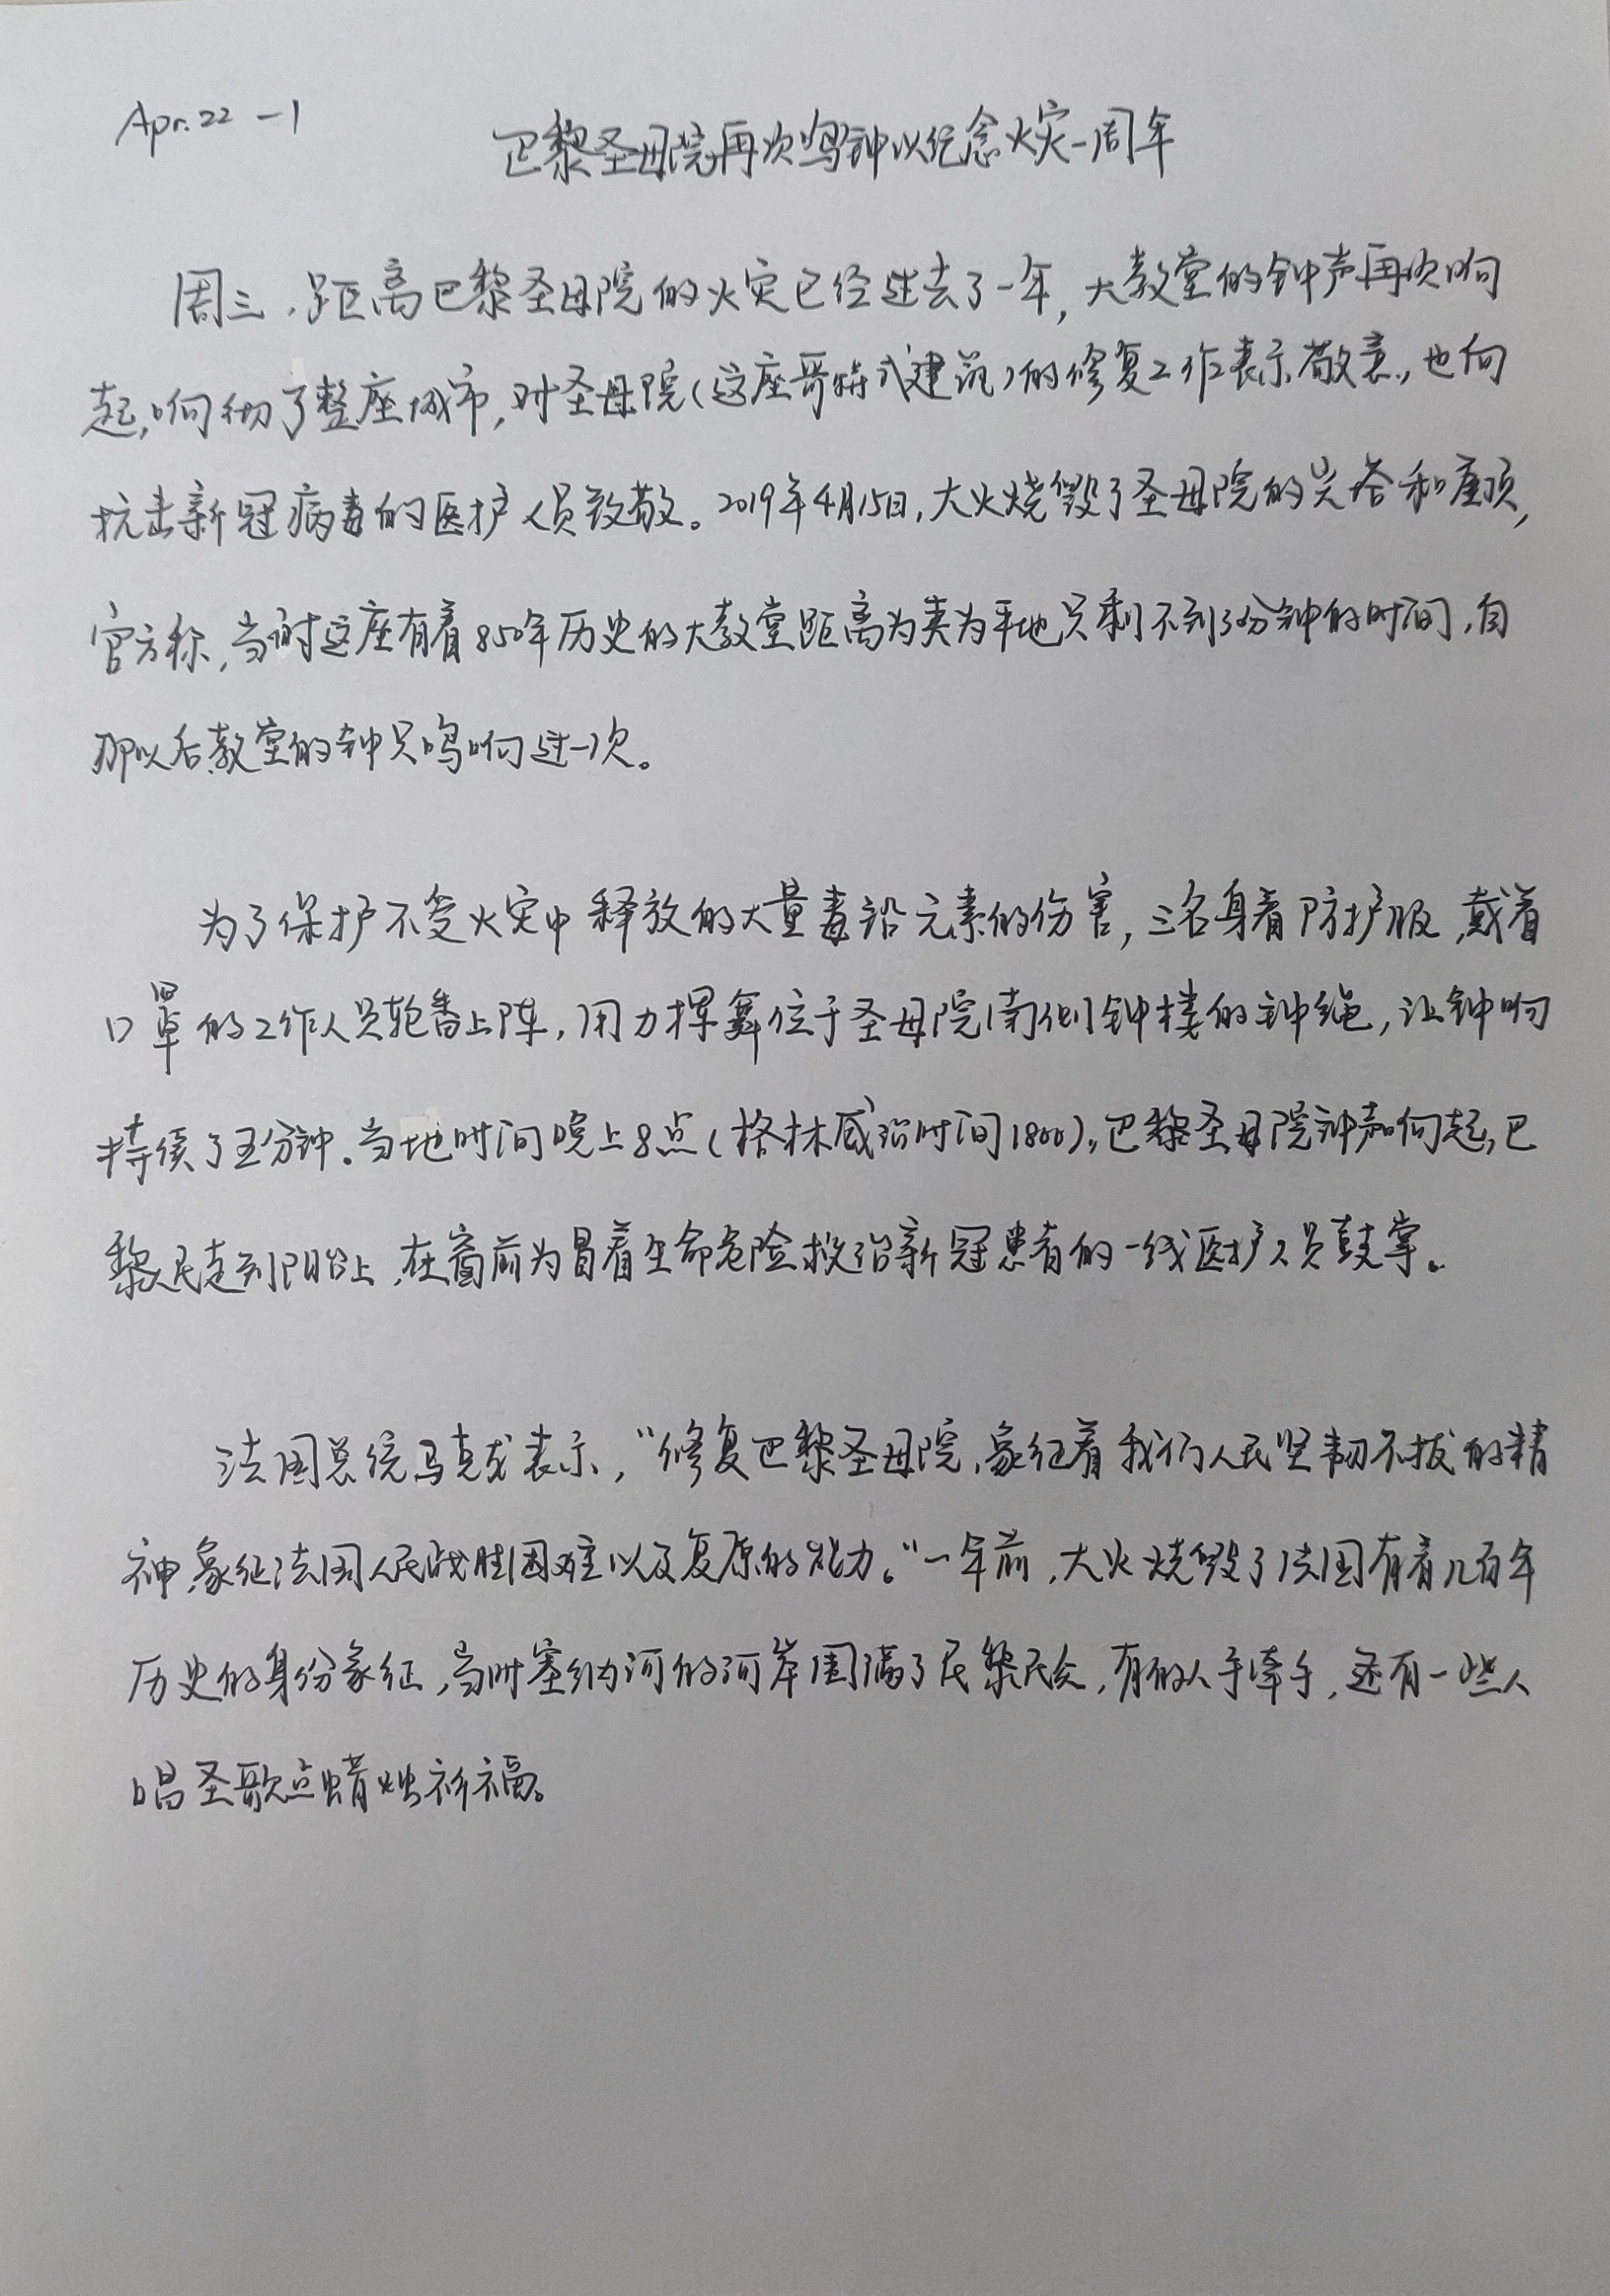 Apr.22 -1
巴黎圣母院再次鸣钟以纪念火灾一周年
周三，距离巴黎圣母院的火灾已经过去了一年，大教堂的钟声再次响
起，响彻了整座城市，对圣母院（这座哥特式建筑）的修复工作表示敬意，也向
抗击新冠病毒的医护人员致敬。2019年4月15日，大火烧毁了圣母院的尖塔和屋顶，
官方称，当时这座有着850年历史的大教堂距离为夷为平地只剩不到30分钟的时间，自
那以后教堂的钟只鸣响过一次。
为了保护不受火灾中释放的大量毒铅元素的伤害，三名身着防护服，戴着
口罩的工作人员轮番上阵，用力挥舞位于圣母院南侧钟楼的钟绳，让钟响
持续了五分钟。当地时间晚上8点（格林威治时间1800），巴黎圣母院钟声响起，巴
黎人民走到阳台上，在窗前为冒着生命危险救治新冠患者的一线医护人员鼓掌。
法国总统马克龙表示，“修复巴黎圣母院，象征着我们人民坚韧不拔的精
神，象征法国人民战胜困难以及复原的能力。”一年前，大火烧毁了法国有着几百年
历史的身份象征，当时塞纳河的河岸围满了民黎民众，有的人手牵手，还有一些人
唱圣歌点蜡烛祈福。